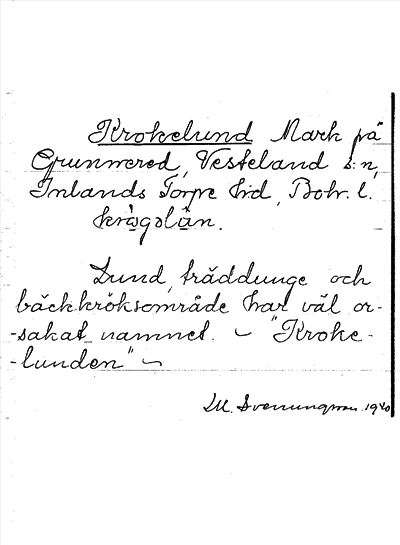 Krokelund Mark på
Grunnered, Vesteland s:n,
Inlands Torpe hrd, Boh. l.
krȯgolän.
Lund, träddunge och
bäckkröksområde har väl or-
-sakat namnet. ~ "Kroke-
-lunden" ~
M. Svenungsson. 1940